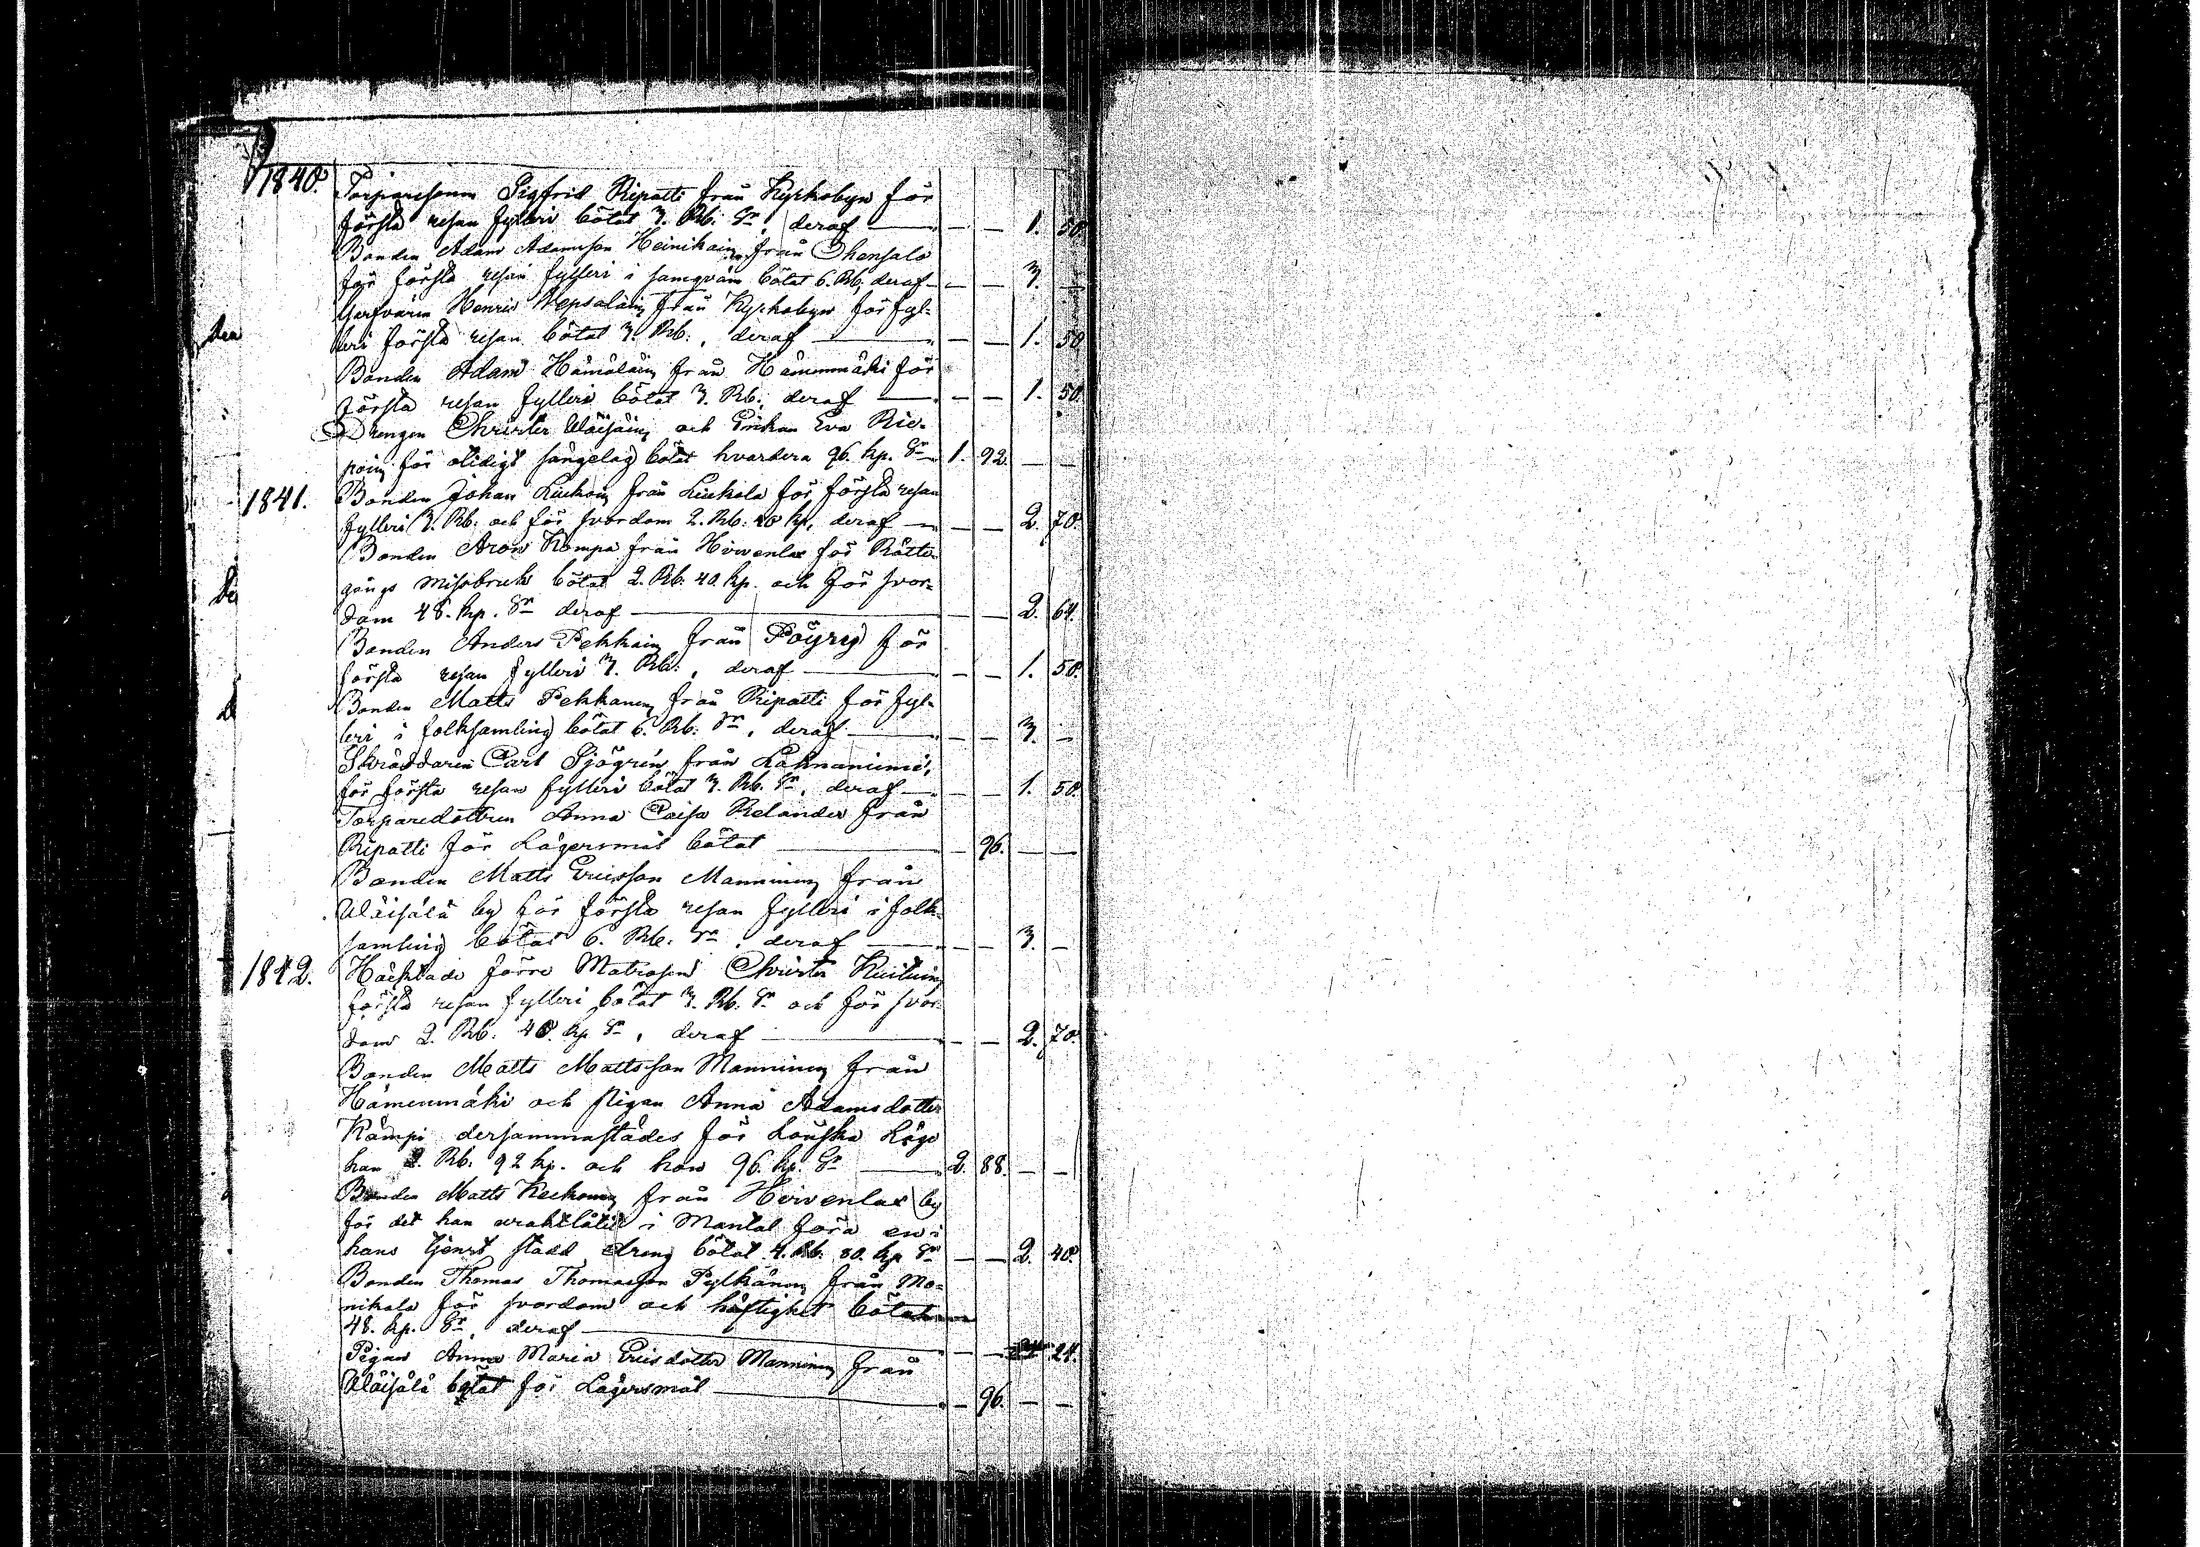 1840. Torparesonen Sigfrid Ripatti från Kyrkobyn för
första resan fylleri bötat 3. Rb. Sr, deraf — — 1. 50.
Bonden Adam Adamsson Heinikain från Ihensalo
för första resan fylleri i samqväm bötat 6. Rb, deraf — — 3. —
Garfvarin Henric Repsaläin från Kyrkobyn för fyl-
leri första resan bötat 3. Rb., deraf — — 1. 50
Bonden Adam Hämäläin från Hämenmäki för
första resan fylleri bötat 3. Rb; deraf — — 1. 50
Drengen Christer Wäisäin och Enkan Eva Rie-
poin för otidigt sängelag bötat hvardera 96. kp. Sr 1. 92. — —
1841. Bonden Johan Liukoin från Liukola för första resan
fylleri 3. Rb. och för svordom 2. Rb. 40 kp, deraf — — 2. 70.
Bonden Aron Kompa från Hirvenlax för Rätte-
gångs missbruk bötat 2. Rb. 40. kp. och för svor-
dom 48. kp. Sr deraf — — 2. 64.
Bonden Anders Pekkain från Pöyry för
första resan fylleri 3. Rb., deraf — — 1. 50.
Bonden Matts Pekkanen från Ripatti för fyl-
leri i folksamling bötat 6. Rb. Sr, deraf — — 3. —
Skräddaren Carl Sjögrén från Lahnaniemi,
för första resan fylleri bötat 3. Rb. Sr, deraf — — 1. 50.
Torparedottren Anna Caisa Relander från
Ripatti för Lägersmål bötat — 96. — —
Bonden Matts Ericsson Manninen från
Wäisälä by för första resan fylleri i folk-
samling bötat 6. Rb. Sr, deraf — — 3. —
1842. Häcktade förre Matrosen Christer
första resan fylleri bötat 3. Rb. Sr och för svor-
dom 2. Rb. 40. kp Sr, deraf — — 2. 70.
Bonden Matts Mattsson Manninen från
Hämenmäki och pigan Anna Adamsdotter
Kämpi dersammastädes för Lönska Läge
han 1. Rb. 92 kp. och hon 96. kp. Sr 2. 88. — —
Bonden Matts från Hirvenlax by
för det han uraktlåtit i Mantal föra en i
hans tjenst stadd dreng bötat 4. Rb. 80. kp Sr — — 2. 40.
Bonden Thomas Thomasson Pylkänen från Mo-
nikala för svordom och häftighet bötat
48. kp. Sr, deraf — — 24.
Pigan Anna Maria Ericsdotter Manninen från
Wäisälä bötat för Lägersmål — 96. — —